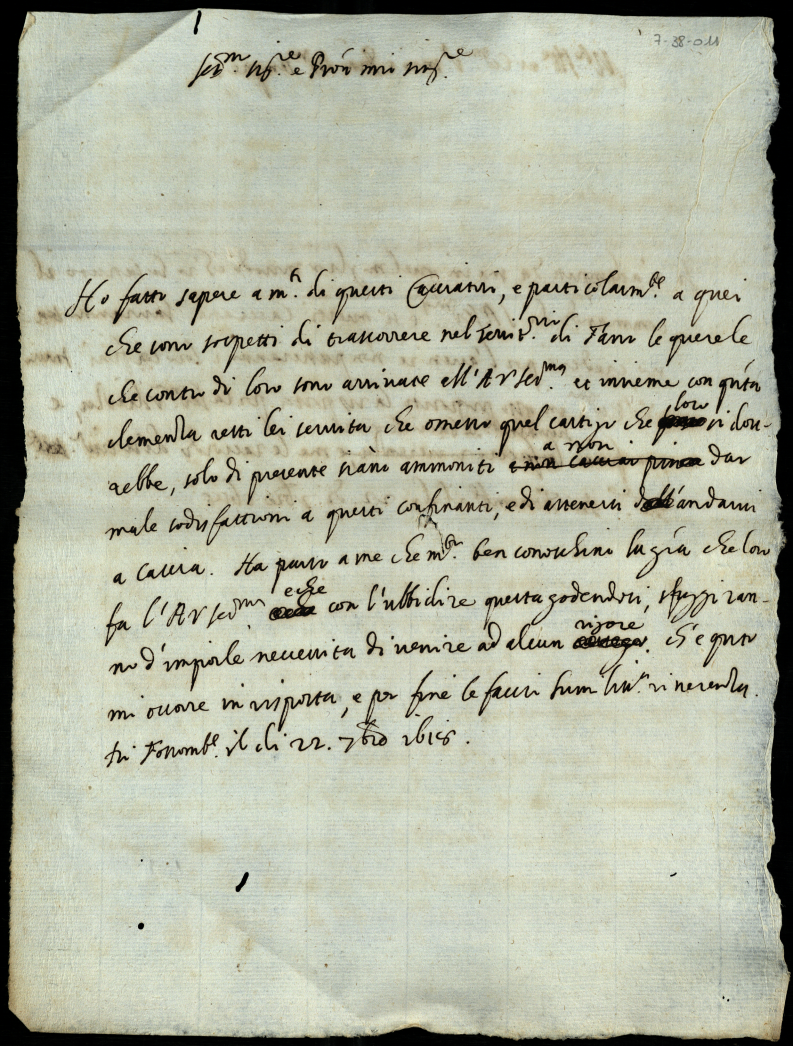 7-38-011
Ser.^m Sig.^re e Prōn mio sing.^re
Ho fatto sapere a m.^ti di questi Cacciatori, e particolarm.^te a quei
che sono sospetti di trascorrere nel territ.^rio di Fano le querele
che contro di loro sono arrivate all'A V Ser.^ma et insieme con q̄sta
clemenza resti lei servita che omesso quel castigo che loro si dov-
rebbe, solo di presente siano ammoniti a non dar
male sodisfattioni a questi confinanti, e di astenersi dall'andarvi
a caccia. Ha parso a me che m.^ti ben conoschino la gr̄a che loro
fa l'A V Ser.^ma e che con l'ubbidire questa godendosi, sfuggiran-
no d'imporle necessita di venire ad alcun rigore. Ch'e q̄sto
mi occorre in risposta, e per fine le faccio hum.^te riverenza.
Di Fossomb.^e il di 22. 7bro 1618.